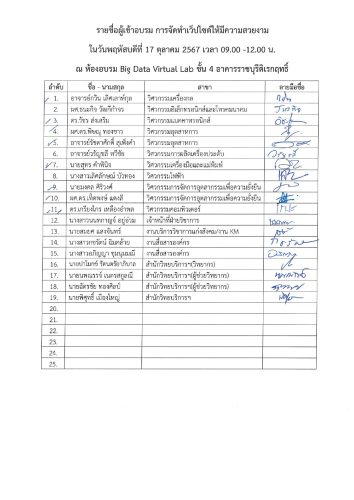 รายชื่อผู้เข้าอบรม การจัดทำเว็บไซต์ให้มีความสวยงาม
ในวันพฤหัสบดีที่ 17 ตุลาคม 2567 เวลา 09.00 -12.00 น.
ณ ห้องอบรม Big Data Virtual Lab ชั้น 4 อาคารราชบุรีดิเรกฤทธิ์
ลำดับ ชื่อ - นามสกุล สาขา ลายมือชื่อ
1. อาจารย์กวิน เลิศเลาห์กุล วิศวกรรมเครื่องกล
2. ผศ.ธนะกิจ วัฒกีกำจร วิศวกรรมอิเล็กทรอนิกส์และโทรคมนาคม
3. ดร.วัชร ส่งเสริม วิศวกรรมเมคคาทรอนิกส์
4. ผศ.ดร.พิษณุ ทองขาว วิศวกรรมอุตสาหการ
5. อาจารย์รัชดาศักดิ์ สุเพ็งคำ วิศวกรรมอุตสาหการ
6. อาจารย์วรัญชลี ทวีชัย วิศวกรรมการผลิตเครื่องประดับ
7. นายสุทร คำพินิจ วิศวกรรมเครื่องมือและแม่พิมพ์
8. นางสาวเลิศลักษณ์ บัวทอง วิศวกรรมไฟฟ้า
9. นายมงคล ศิริวงศ์ วิศวกรรมการจัดการอุตสาหกรรมเพื่อความยั่งยืน
10. ผศ.ดร.เกิดพงษ์ แดงสี วิศวกรรมการจัดการอุตสาหกรรมเพื่อความยั่งยืน
11. ดร.เกรียงไกร เหลืองอำพล วิศวกรรมคอมพิวเตอร์
12. อยู่อ่วม เจ้าหน้าที่ฝ่ายวิชาการ
13. นายสมยศ แสงจันทร์ งานบริการวิชาการแก่สังคม/งาน KM
14. นางสาวกชรัตน์ นิ่มคล้าย งานสื่อสารองค์กร
15. นางสาวอภิญญา ชุมนุมมณี งานสื่อสารองค์กร
16. นายปาโมกข์ รัตนตรัยาภิบาล สำนักวิทยบริการฯ(วิทยากร)
17. นายนพณรรจ์ เนตรสกุลณี สำนักวิทยบริการฯ(ผู้ช่วยวิทยากร)
18. นายฉัตรชัย ทองศิลป์ สำนักวิทยบริการฯ(ผู้ช่วยวิทยากร)
19. นายพิศุทธิ์ เมืองใหญ่ สำนักวิทยบริการฯ
20.
21.
22.
23.
24.
25.